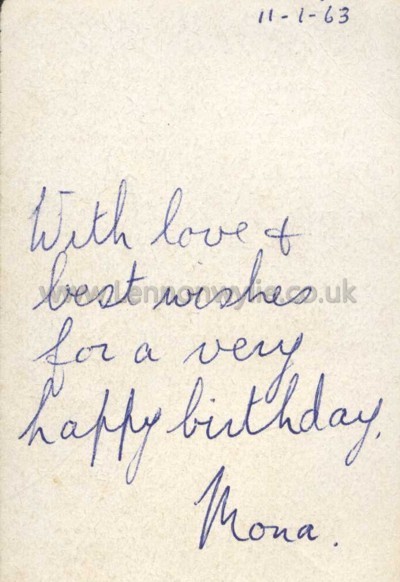 11-1-63
With love &
best wishes
www.Lennonwylie.co.uk
for a very
happy birthday.
Mona.